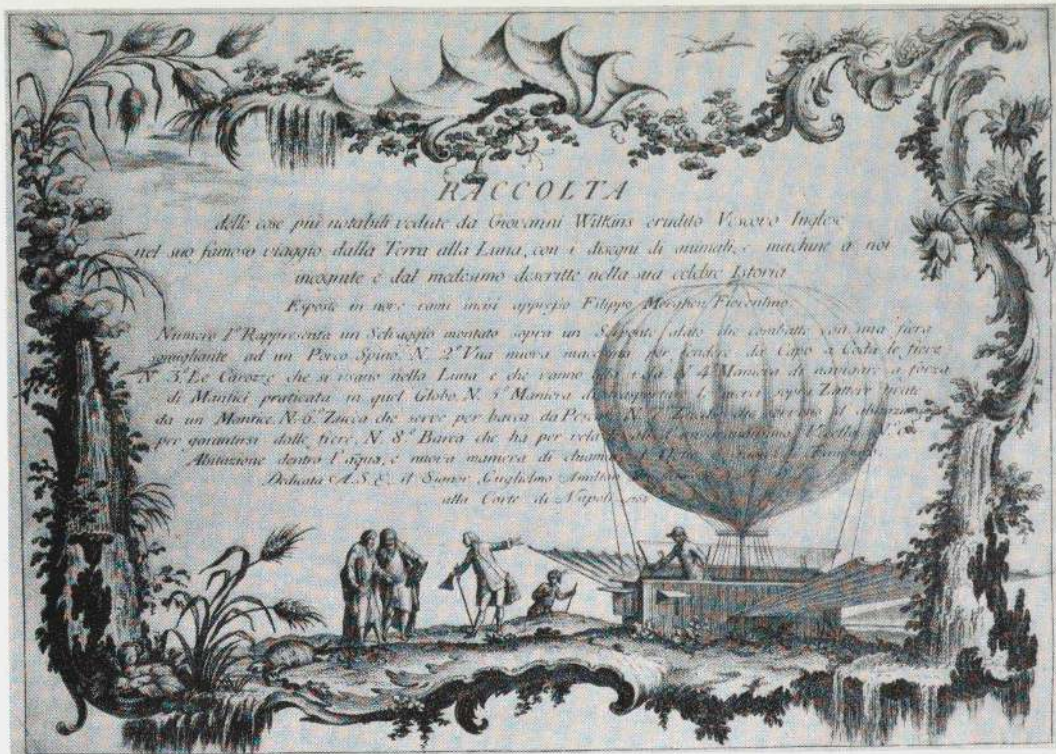 RACCOLTA
delle cose più notabili vedute da Giovanni Wilkins erudito Vescovo Inglese
nel suo famoso viaggio dalla Terra alla Luna, con i disegni di animali, e machine a noi
incognite e dal medesimo descritte nella sua celebre Istoria
Esposte in nove rami incisi appresso Filippo Morghen Fiorentino
Numero 1º Rappresenta un Selvaggio montato sopra un Serpente alato che combatte con una fiera
somigliante ad un Porco Spino. N. 2º Una nuova macchina per fendere da Capo a Coda le fiere
N. 3º Le Carozze che si usano nella Luna e che vanno N. 4º Maniera di navigare a forza
di Mantici praticata in quel Globo. N. 5 Maniera di sopra Zattere tirate
da un Mantice. N. 6º Zucca che serve per barca da N. 7
per garantirsi dalle fiere. N. 8º Barca che ha per vela
Abitazione dentro l'aqua, e nuova maniera di
Dedicata A. S. E. il Signor Guglielmo
alla Corte di Napoli